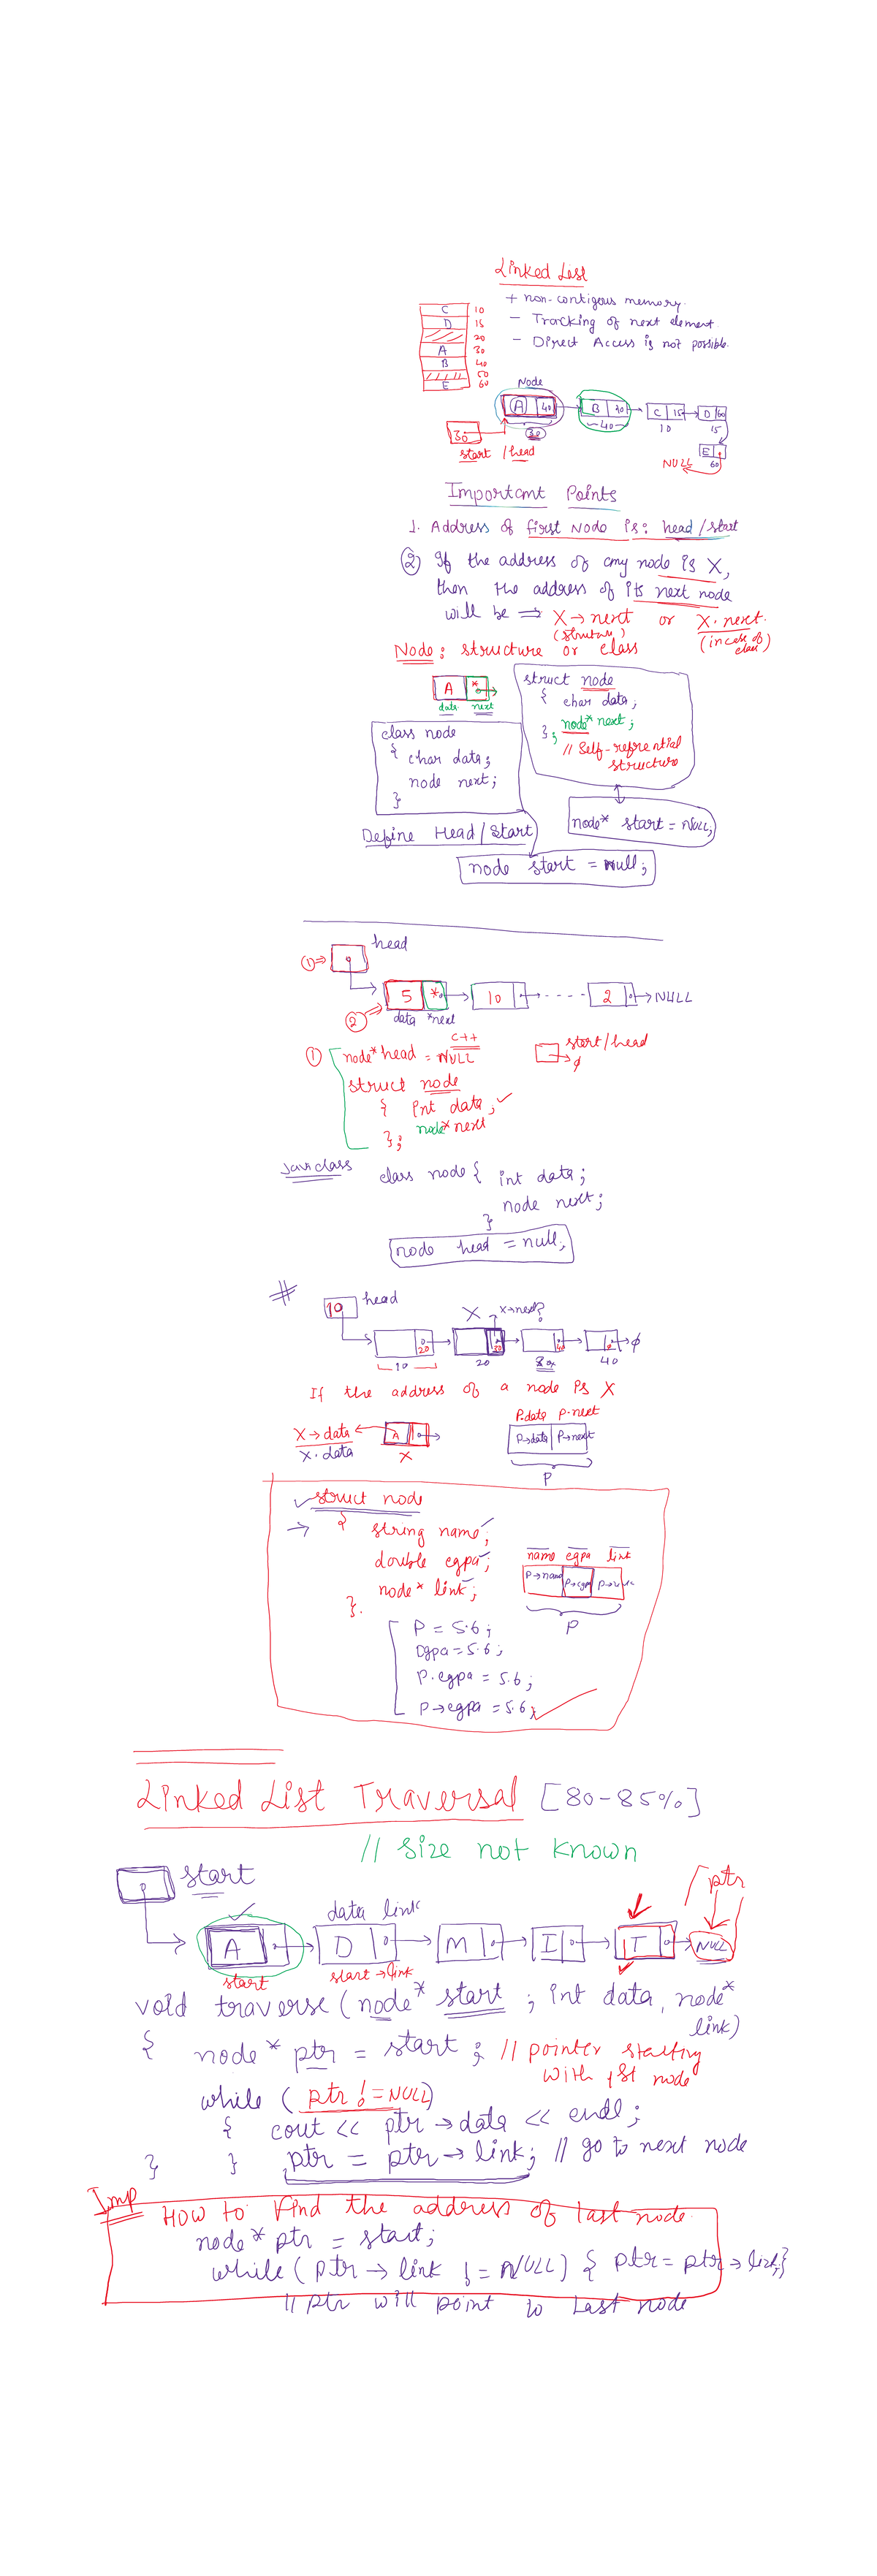 Linked List
+ non-contigous memory.
- Tracking of next element
- Direct Access is not possible.
C 10
D 15
20
A 30
B 40
50
E 60
Node
A 40
B 10
C 15
D 60
30
40
10
15
30
start / head
E
NULL 60
Important Points
1. Address of first Node is: head/start
② If the address of any node is X,
then the address of its next node
will be ⇒ X→next or X.next.
(structure) (in case of class)
Node: structure or class
A *
data next
struct node
{ char data;
node* next;
};
// Self-refrential
structure
class node
{ char data;
node next;
}
node* start = NULL;
Define Head/Start
node start = null;
head
①⇒
5 * 10 ---- 2 → NULL
②⇒ data *next
C++
① node* head = NULL
start/head
φ
struct node
{ int data;
node* next
};
Java class class node { int data;
node next;
}
node head = null;
# 10 head
X x→next?
20 30 40
10 20 30 40 φ
If the address of a node is X
X→data A
X.data X
P.data P.next
P→data P→next
P
struct node
{ string name;
double cgpa;
node* link;
}.
name cgpa link
P→name P→cgpa P→link
P
P = 5.6;
cgpa = 5.6;
P.cgpa = 5.6;
P→cgpa = 5.6;
Linked List Traversal [80-85%]
// size not known
start
ptr
data link
A D M I T NULL
start start→link
void traverse (node* start ; int data, node*
link)
{ node* ptr = start ; // pointer starting
with 1st node
while ( ptr != NULL)
{ cout << ptr→data << endl ;
ptr = ptr→link; // go to next node
} }
Imp
How to Find the address of last node.
node* ptr = start;
while ( ptr → link != NULL) { ptr = ptr→link;}
// ptr will point to last node